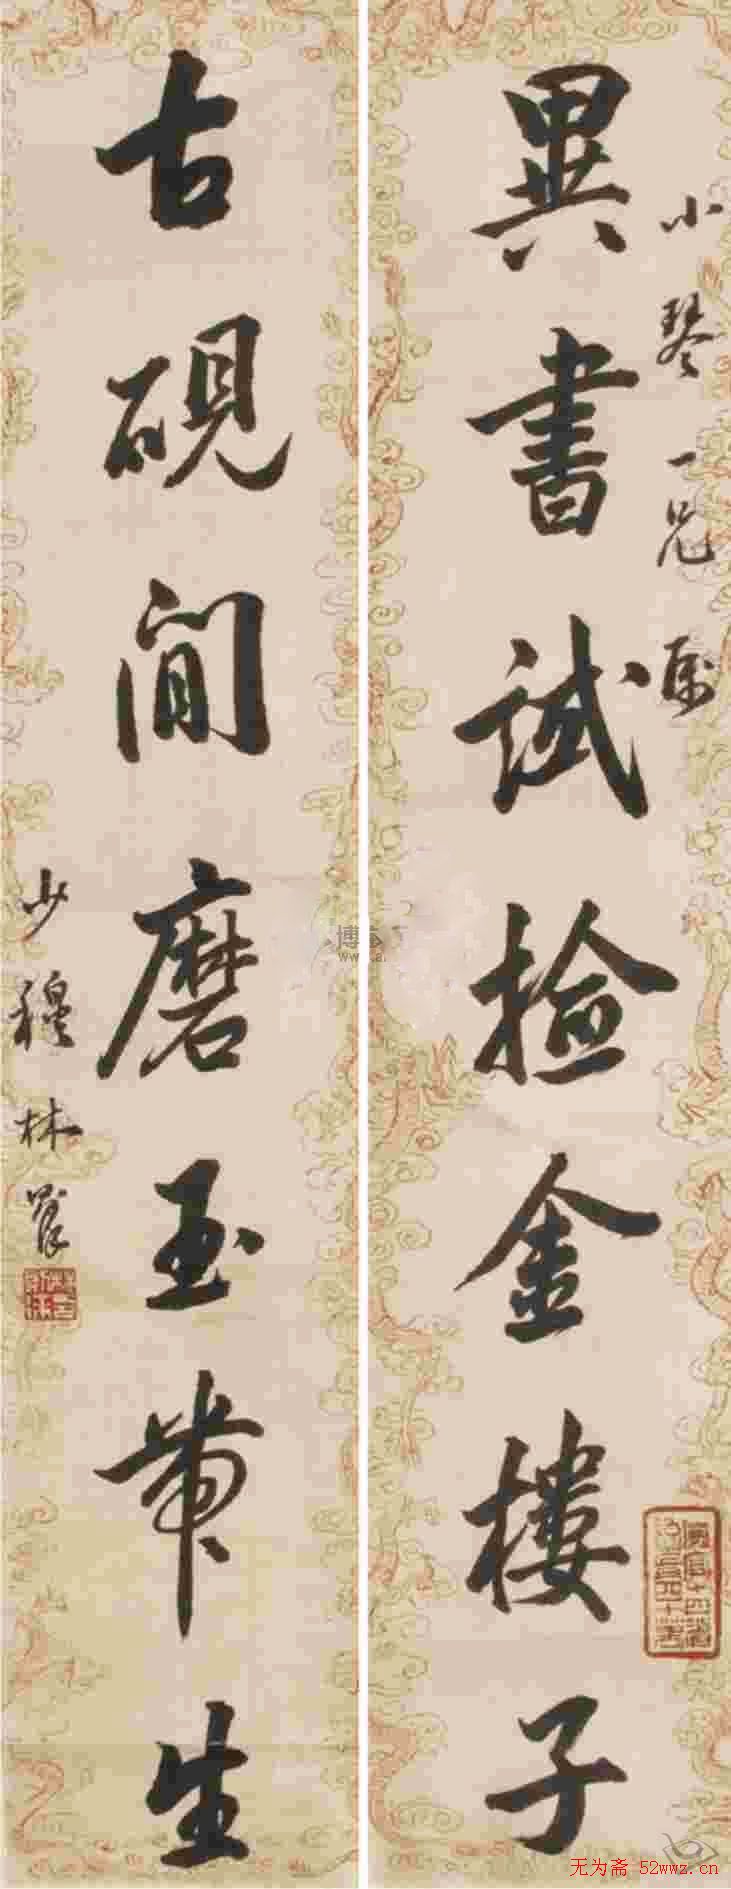 異書試撿金樓子
小琴一兄属
古硯閒磨玉帶生
少穆林則徐
博
www.a
无为斋 52wwz.cn